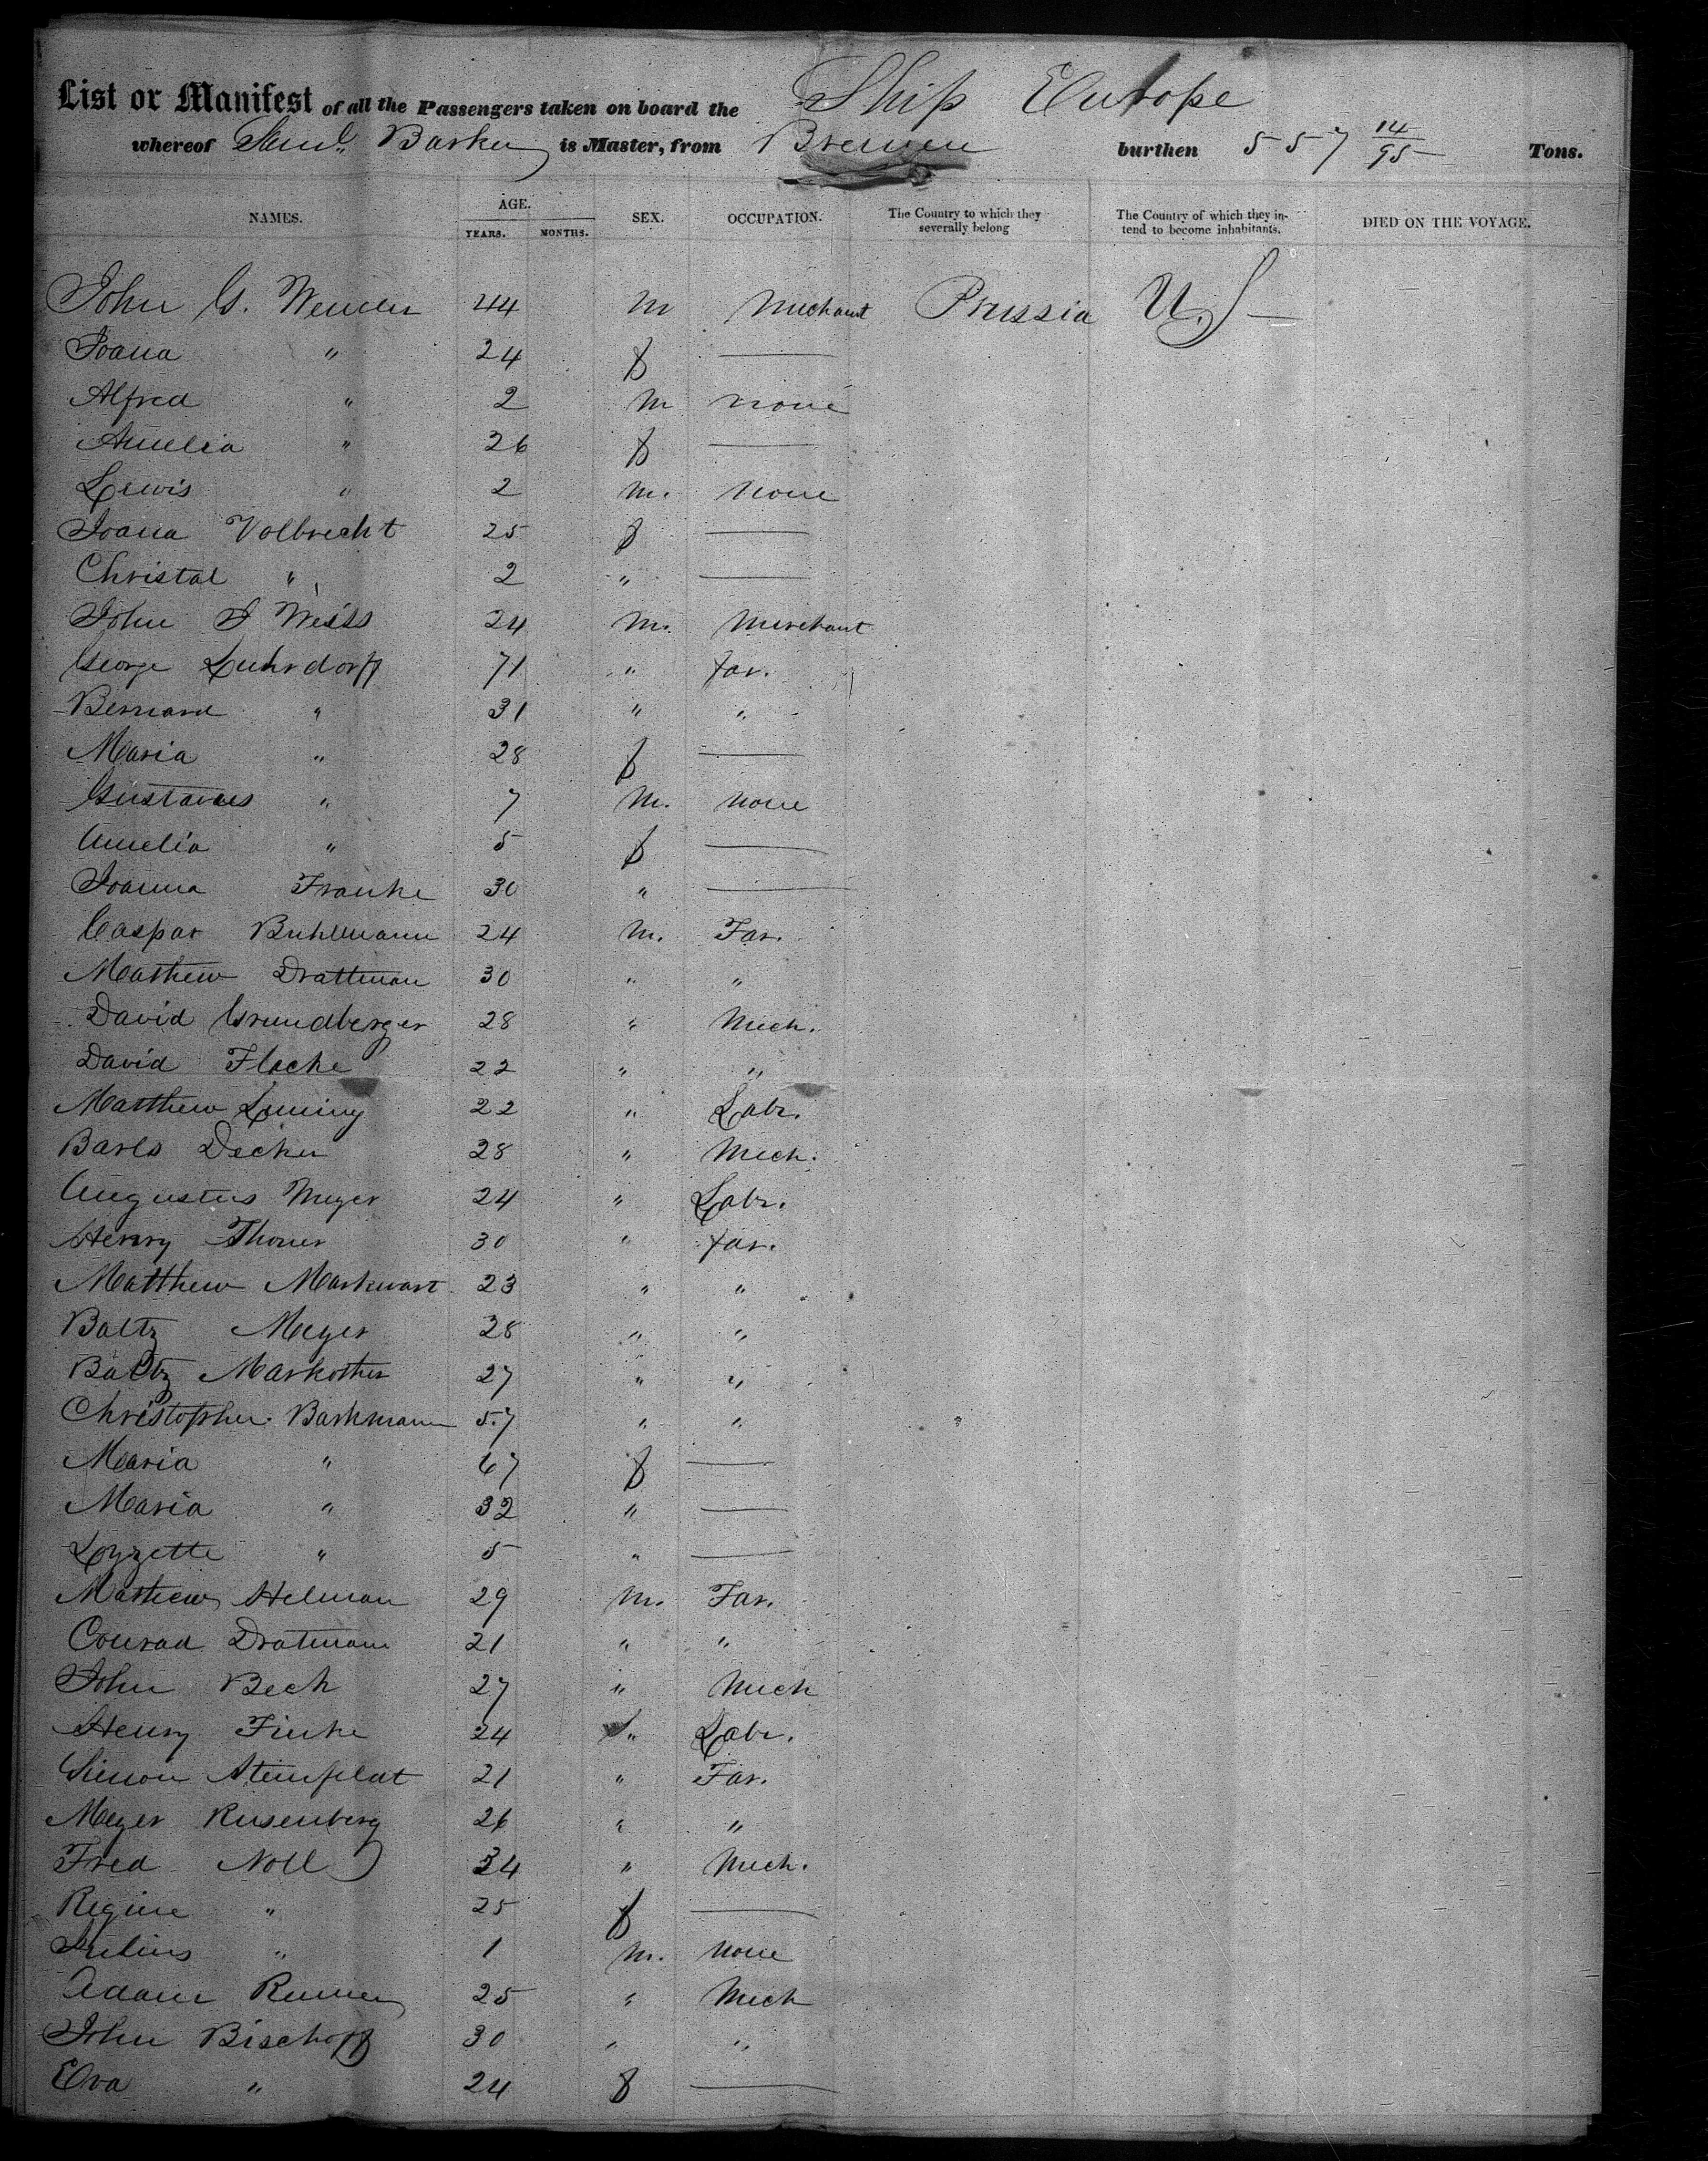 List or Manifest of all the Passengers taken on board the Ship Europe
whereof Saml. Barker is Master, from Bremen burthen 557 14/95 Tons.
NAMES. AGE. YEARS. MONTHS. SEX. OCCUPATION. The Country to which they severally belong The Country of which they intend to become inhabitants. DIED ON THE VOYAGE.
John G. 44 m Merchant Prussia U.S —
Joana " 24 f —
Alfred " 2 m none
Amelia " 26 f —
Lewis " 2 m. none
Joana Volbrecht 25 f —
Christal " 2 " —
John J Weiss 24 m. Merchant
George Luhrdorff 71 " far.
Bernard " 31 " "
Maria " 28 f —
Gustavus " 7 m. none
Amelia " 5 f —
Joanna Franke 30 " —
Caspar Buhlmann 24 m. Far.
Mathew Drattman 30 " "
David Grundberger 28 " Mech.
David Flacke 22 " "
Matthew Luning 22 " Labr.
Barls Decker 28 " Mech.
Augustus Meyer 24 " Labr.
Henry Thoner 30 " far.
Matthew Markwart 23 " "
Baltz Meyer 28 " "
Baltz 27 " "
Christopher Barkmann 57 " "
Maria " 67 f —
Maria " 32 " —
Lozzette " 5 " —
Mathew Helman 29 m. Far.
Conrad Dratmann 21 " "
John Bech 27 " Mech
Henry Finke 24 " Labr.
Simon 21 " Far.
Meyer Rusenberg 26 " "
Fred Noll 34 " Mech.
Regine " 25 f —
Julius " 1 m. none
Adam 25 " Mech
John Bischoff 30 " "
Eva " 24 f —